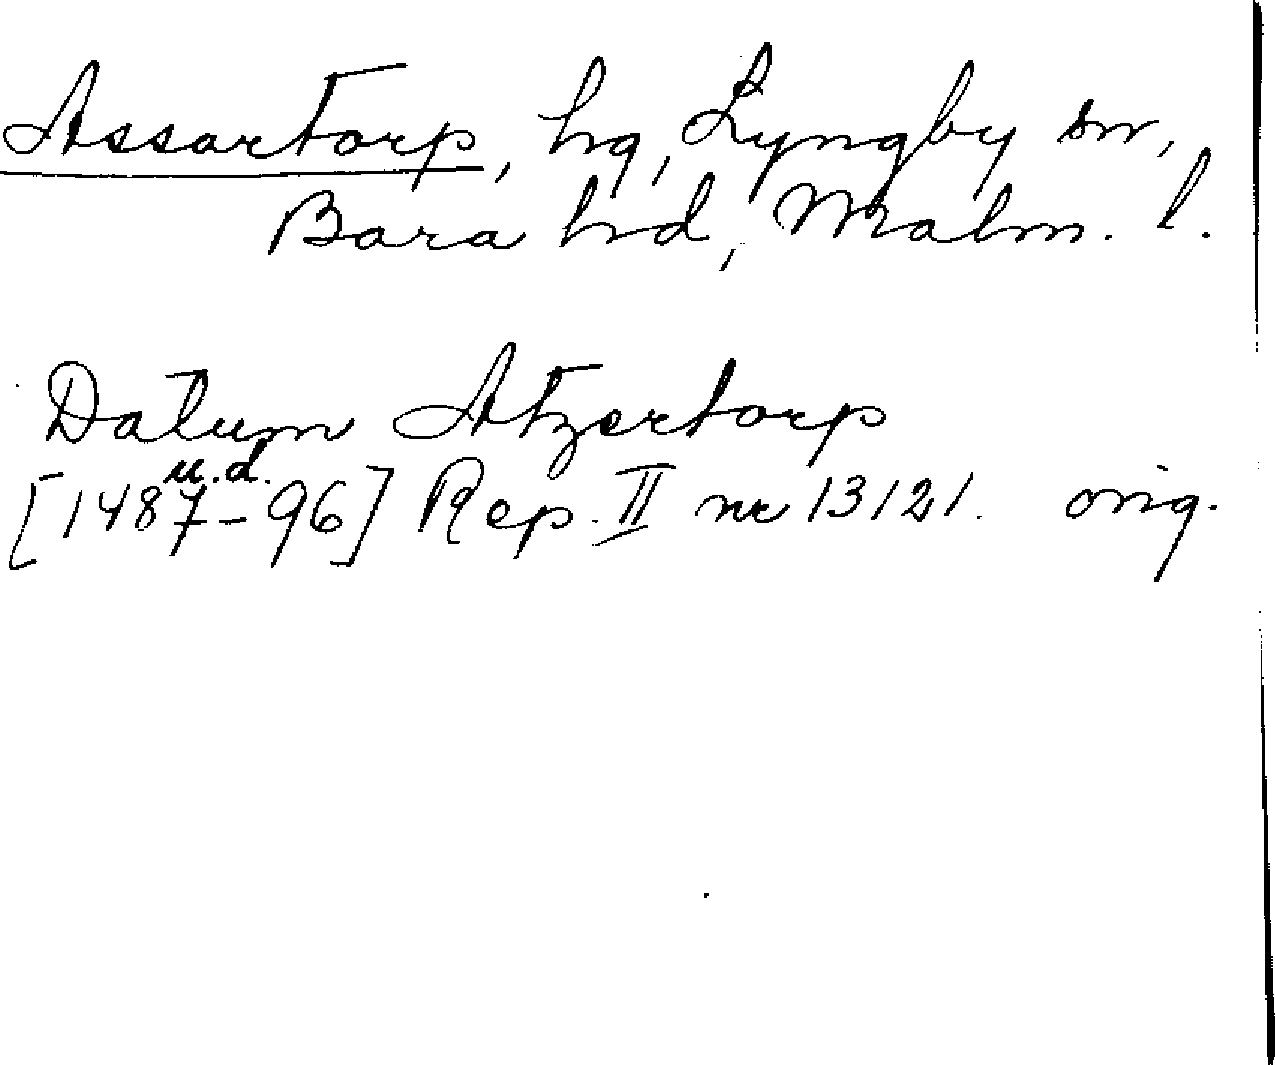 Assartorp, hg, Lyngby sn,
Bara hd, Malm. l.
Datum Atzertorp
u.d.
[1487-96] Rep. II nr 13121. orig.